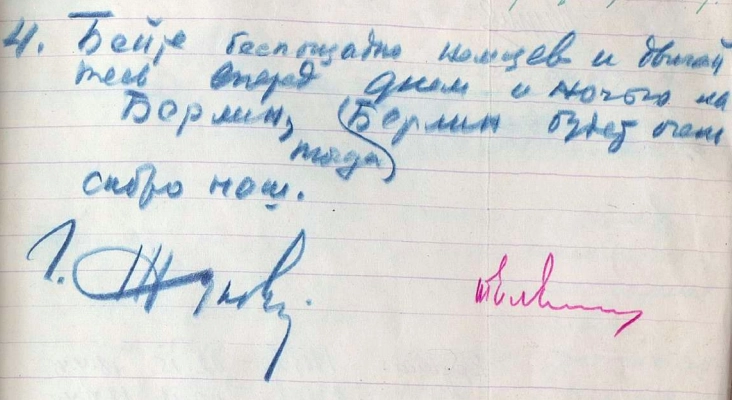 4. Бейте беспощадно немцев и двигай
тесь вперед днем и ночью на
Берлин, Берлин будет очень
тогда
скоро наш.
Г. Жуков